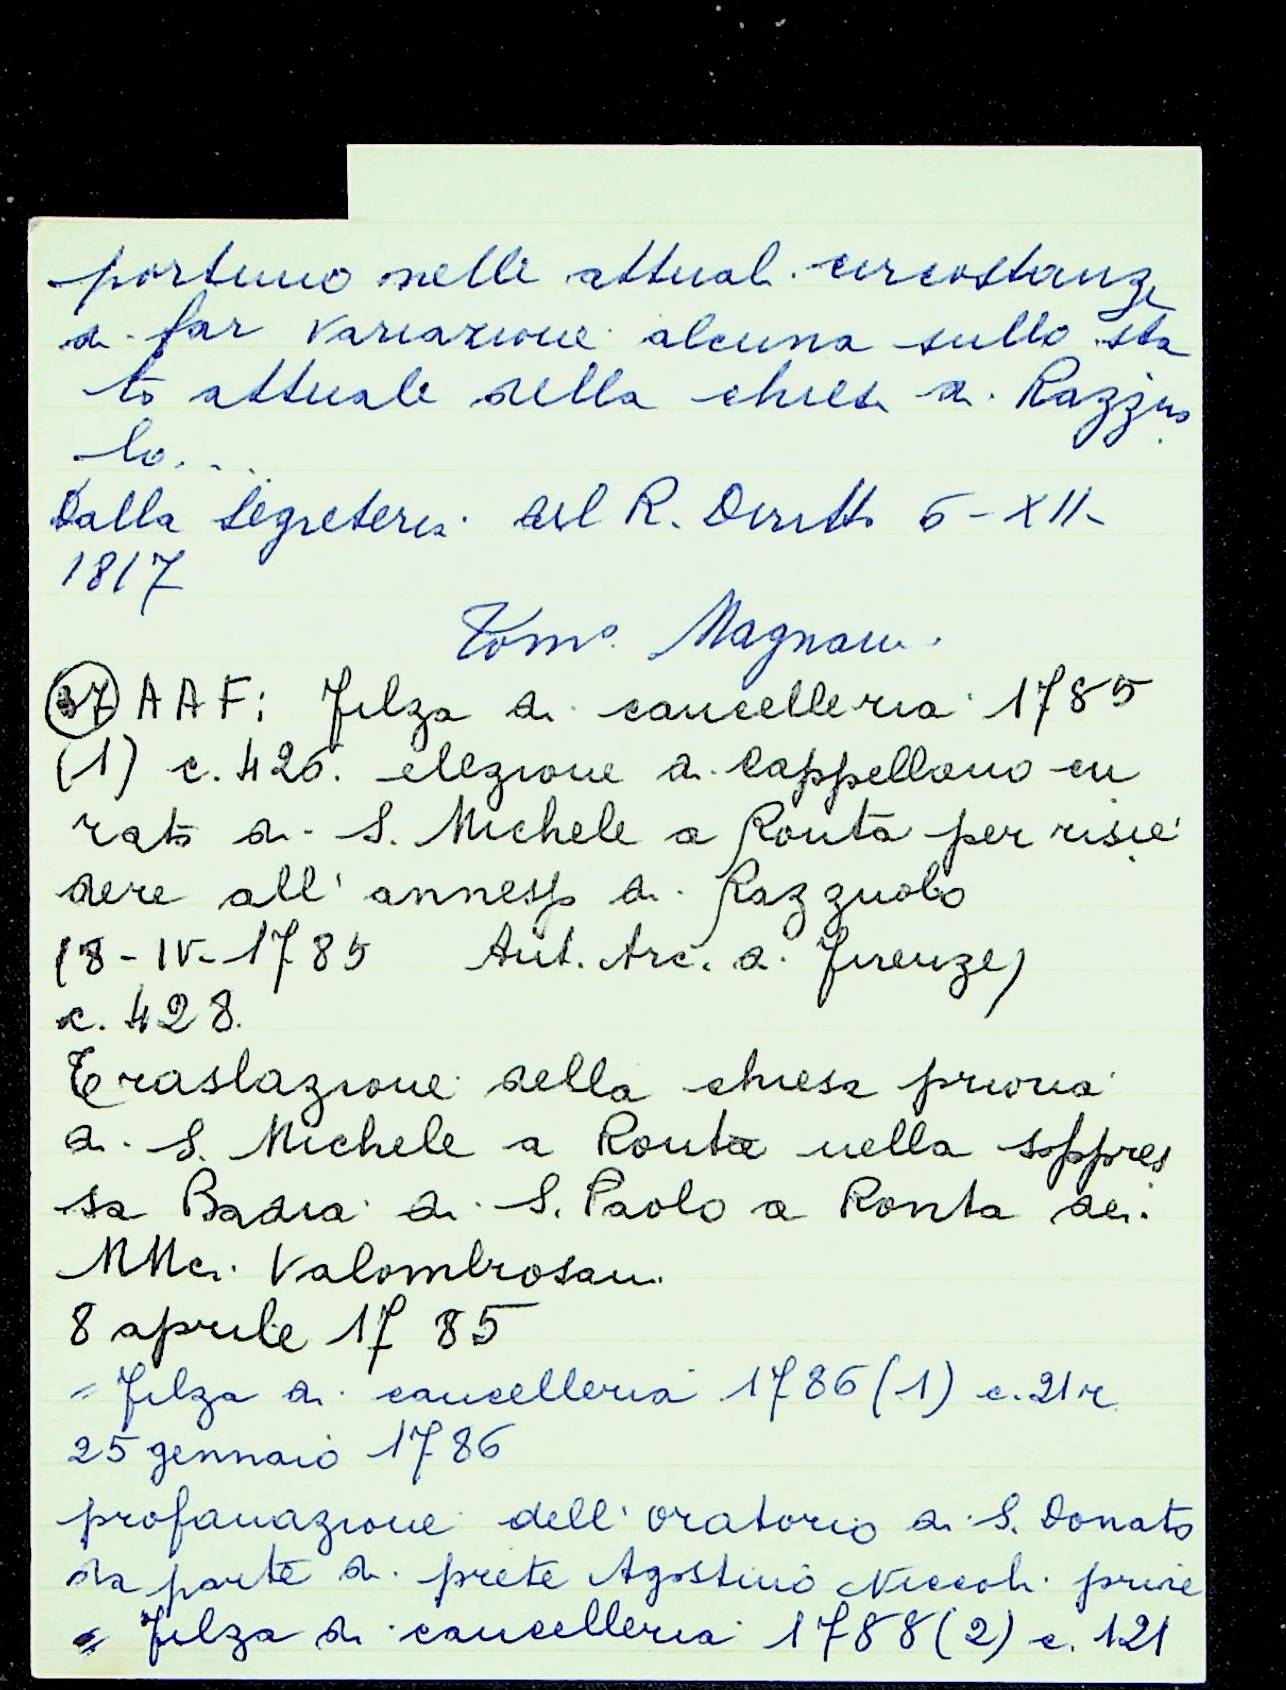 portuno nelle attuali circostanze
di far variazione alcuna sullo sta
to attuale della chiesa di Razzuo
lo....
Dalla Segreteria del R. Diritto 6-XII-
1817
Tomº. Magnani.
37 A A F: Filza di cancelleria 1785
(1) c. 426. elezione di Cappellano cu
rato di S. Michele a Ronta per risie
dere all'annesso di Razzuolo
18-IV-1785 Ant. Arc. di Firenze)
c. 428.
Traslazione della chiesa prioria
di S. Michele a Ronta nella soppres
sa Badia di S. Paolo a Ronta dei
MMci Valombrosani
8 aprile 1785
= Filza di cancelleria 1786 (1) c. 21r
25 gennaio 1786
profanazione dell'oratorio di S. Donato
da parte di prete Agostino Niccoli priore
= Filza di cancelleria 1788 (2) c. 121